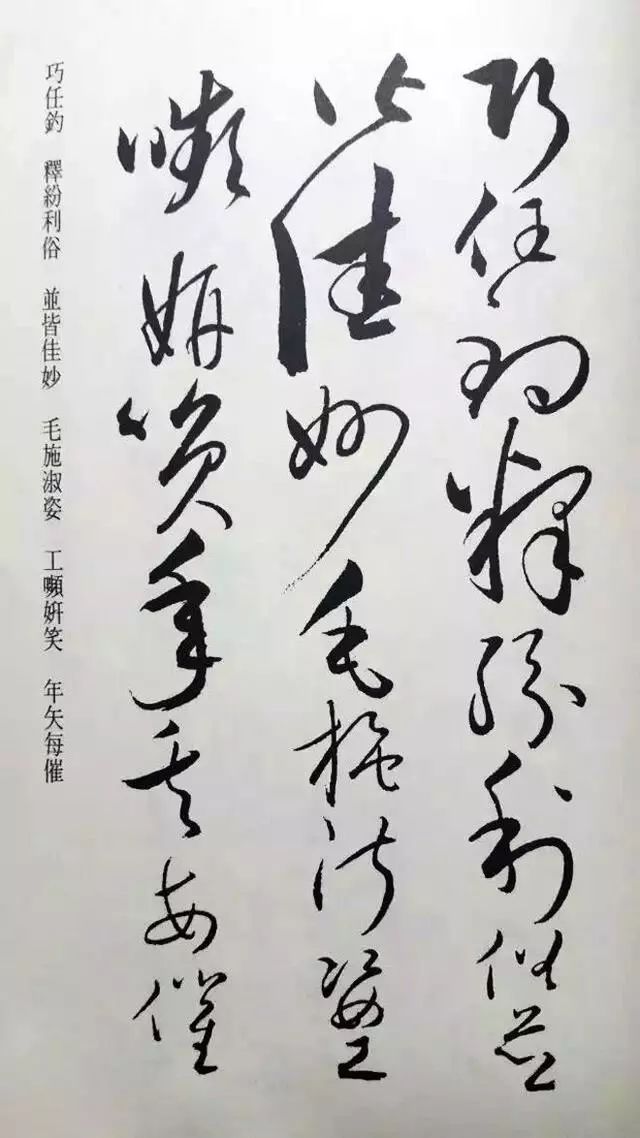 巧任釣釋紛利俗並
皆佳妙毛施淑姿工
嚬妍笑年矢每催
巧任釣　釋紛利俗　並皆佳妙　毛施淑姿　工嚬妍笑　年矢每催